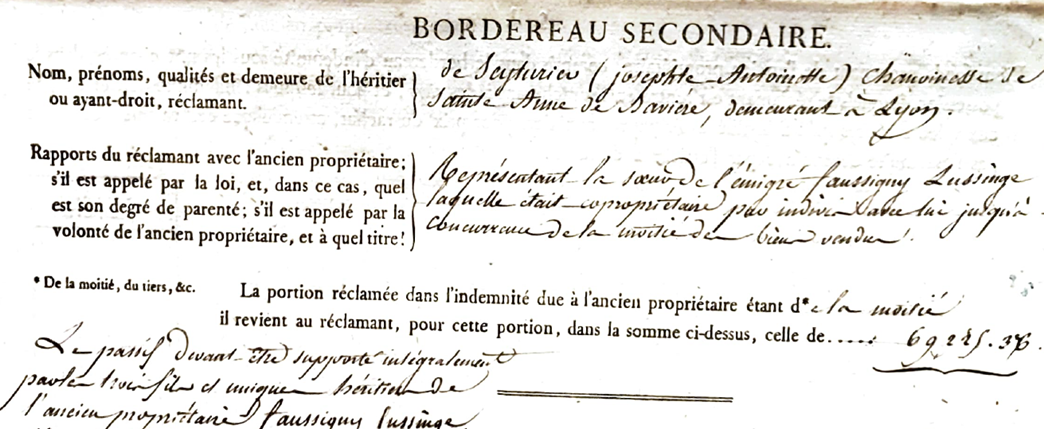 BORDEREAU SECONDAIRE.
Nom, prénoms, qualités et demeure de l'héritier ou ayant-droit, réclamant.
de Seyturier (josephte Antoinette) Chanoinesse de
Sainte Anne de Bavière, demeurant à Lyon.
Rapports du réclamant avec l'ancien propriétaire;
s'il est appelé par la loi, et, dans ce cas, quel
est son degré de parenté; s'il est appelé par la
volonté de l'ancien propriétaire, et à quel titre!
Représentant la sœur de l'émigré faussigny Lussinge
laquelle était copropriétaire par indivis avec lui jusqu'à
concurrence de la moitié des biens vendus.
* De la moitié, du tiers, &c.
La portion réclamée dans l'indemnité due à l'ancien propriétaire étant d* e la moitié
il revient au réclamant, pour cette portion, dans la somme ci-dessus, celle de.....
Le passif devant être supporté intégralement
par les trois fils et uniques héritiers de
l'ancien propriétaire faussigny Lussinge